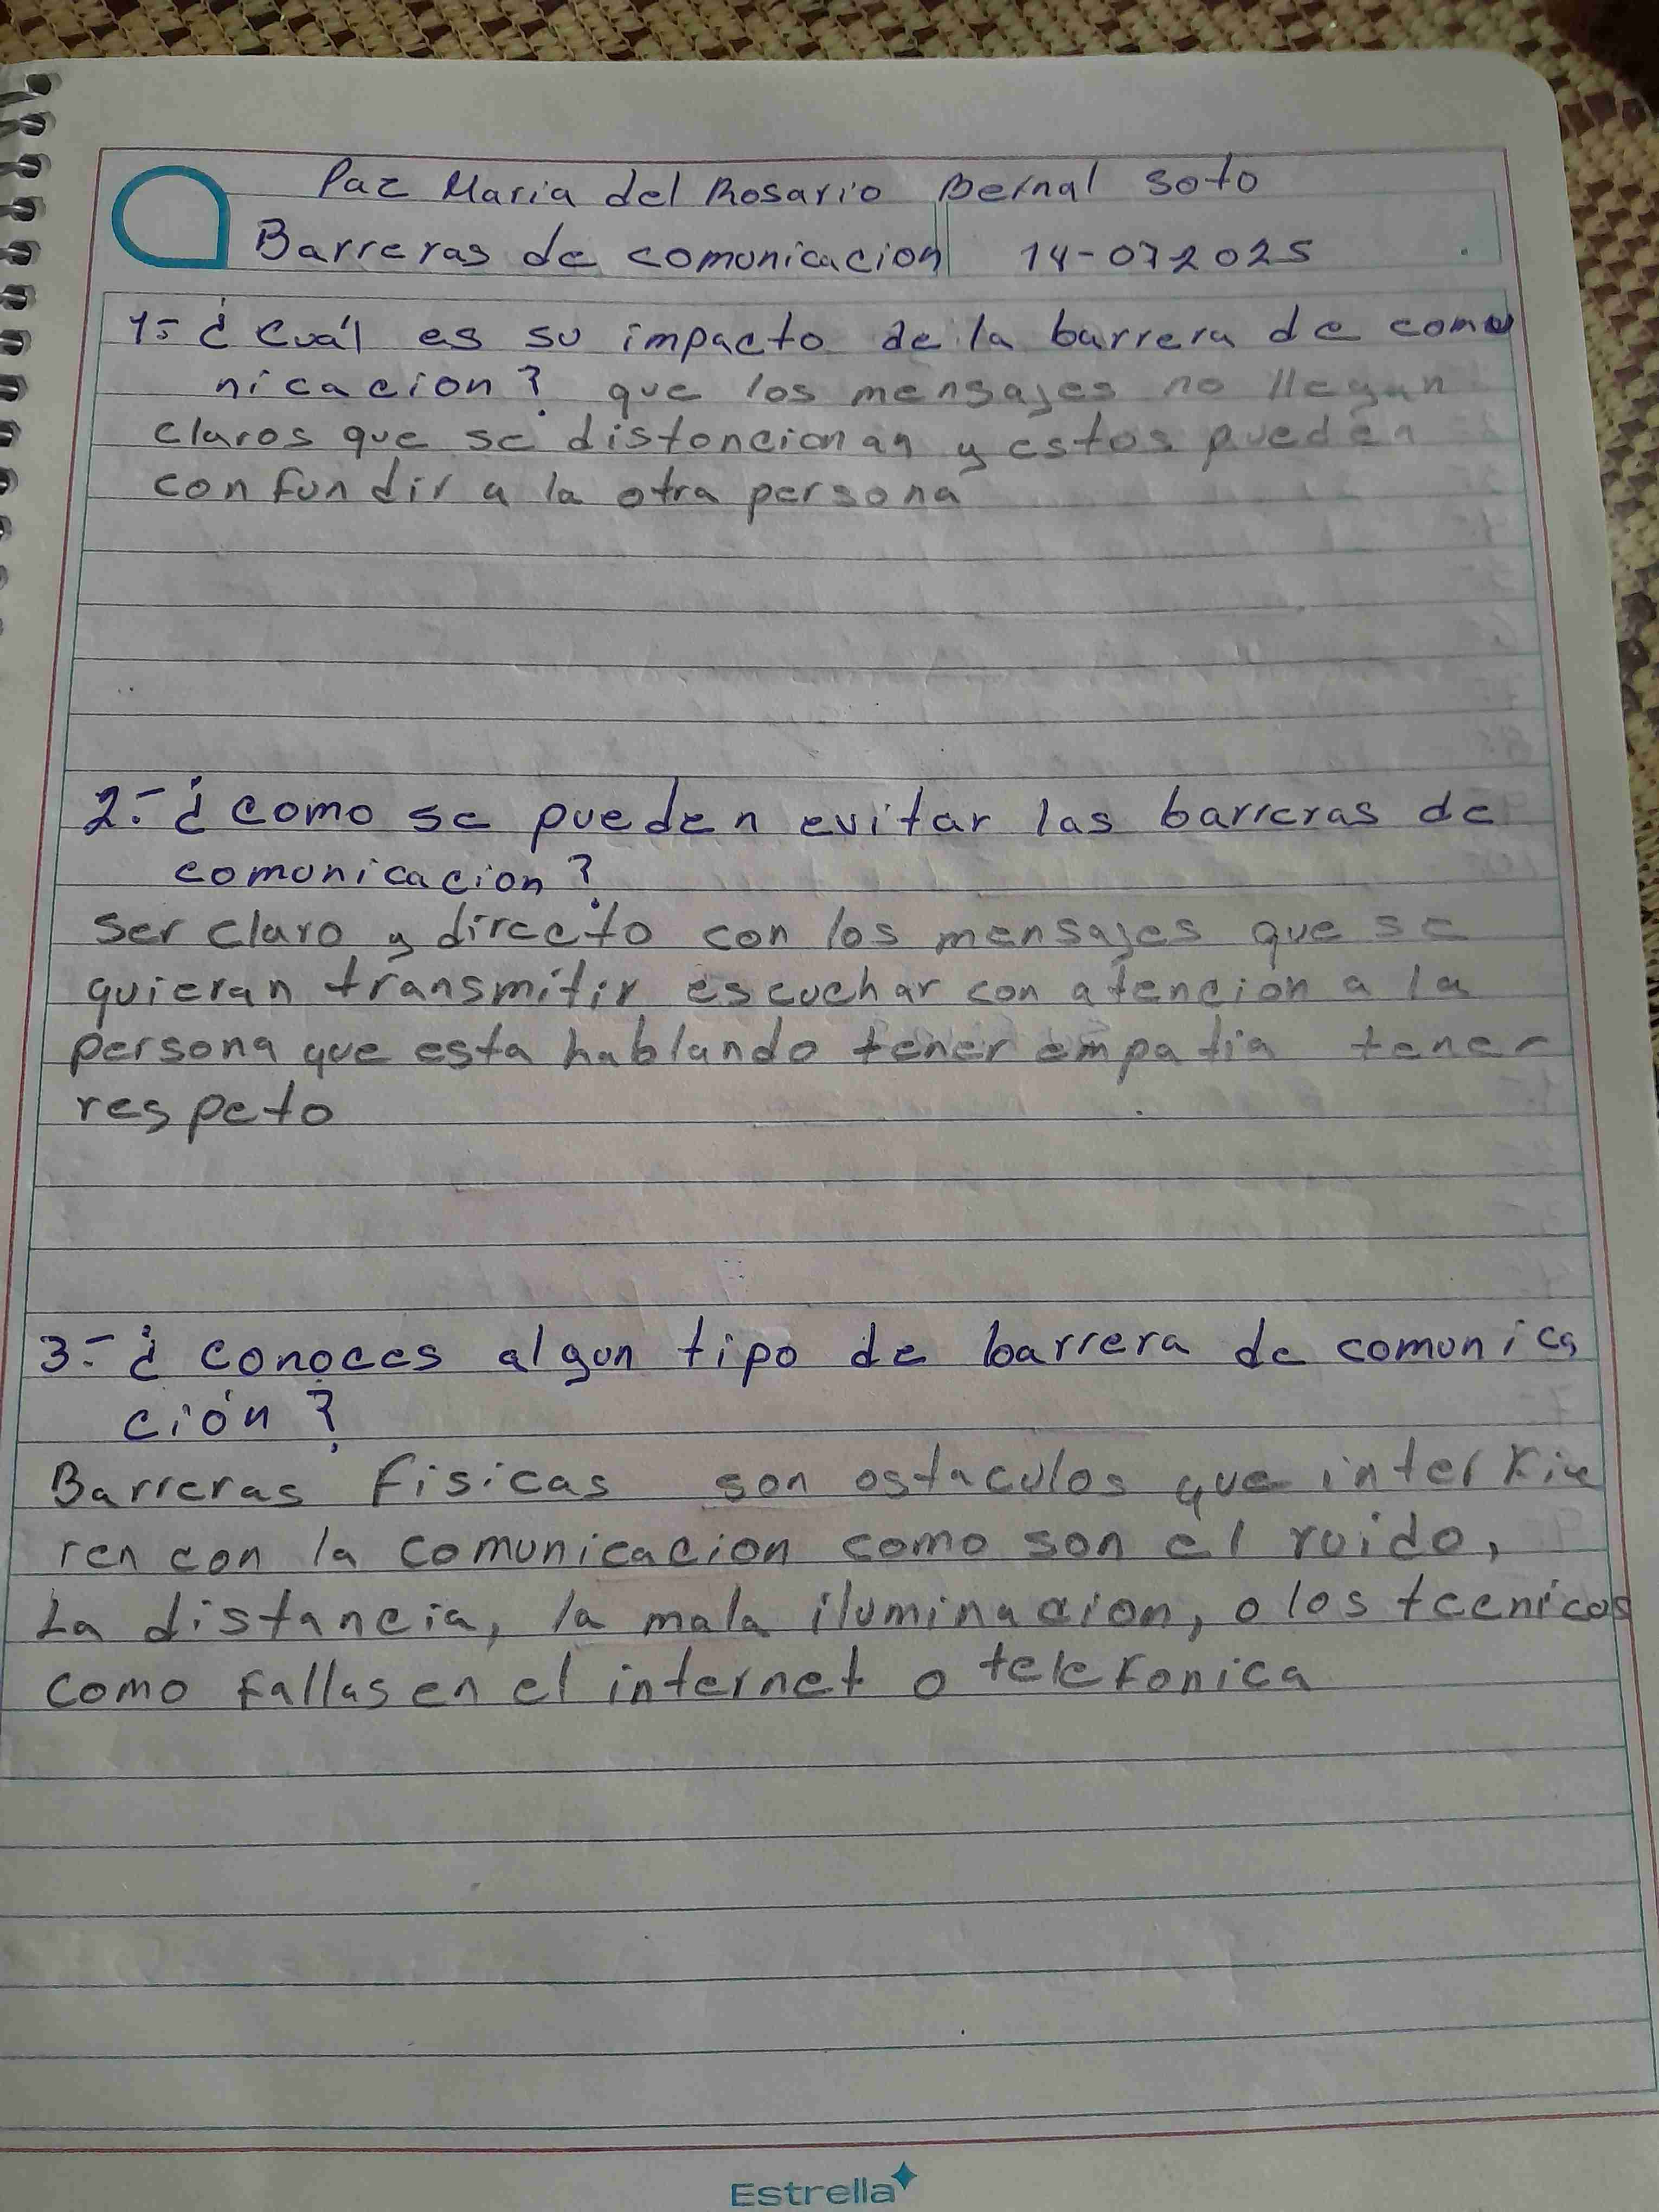 Paz Maria del Rosario Bernal Soto
Barreras de comunicacion 14-072025
1=¿Cuál es su impacto de la barrera de comu
nicacion? que los mensajes no llegan
claros que se distoncionan y estos pueden
confundir a la otra persona
2.-¿como se pueden evitar las barreras de
comunicacion?
ser claro y directo con los mensajes que se
quieran transmitir escuchar con atención a la
persona que esta hablando tener empatia tener
respeto
3.-¿conoces algun tipo de barrera de comunica
ción?
Barreras fisicas son ostaculos que interfie
ren con la comunicacion como son el ruido,
La distancia, la mala iluminacion, o los tecnicos
como fallas en el internet o telefonica
Estrella